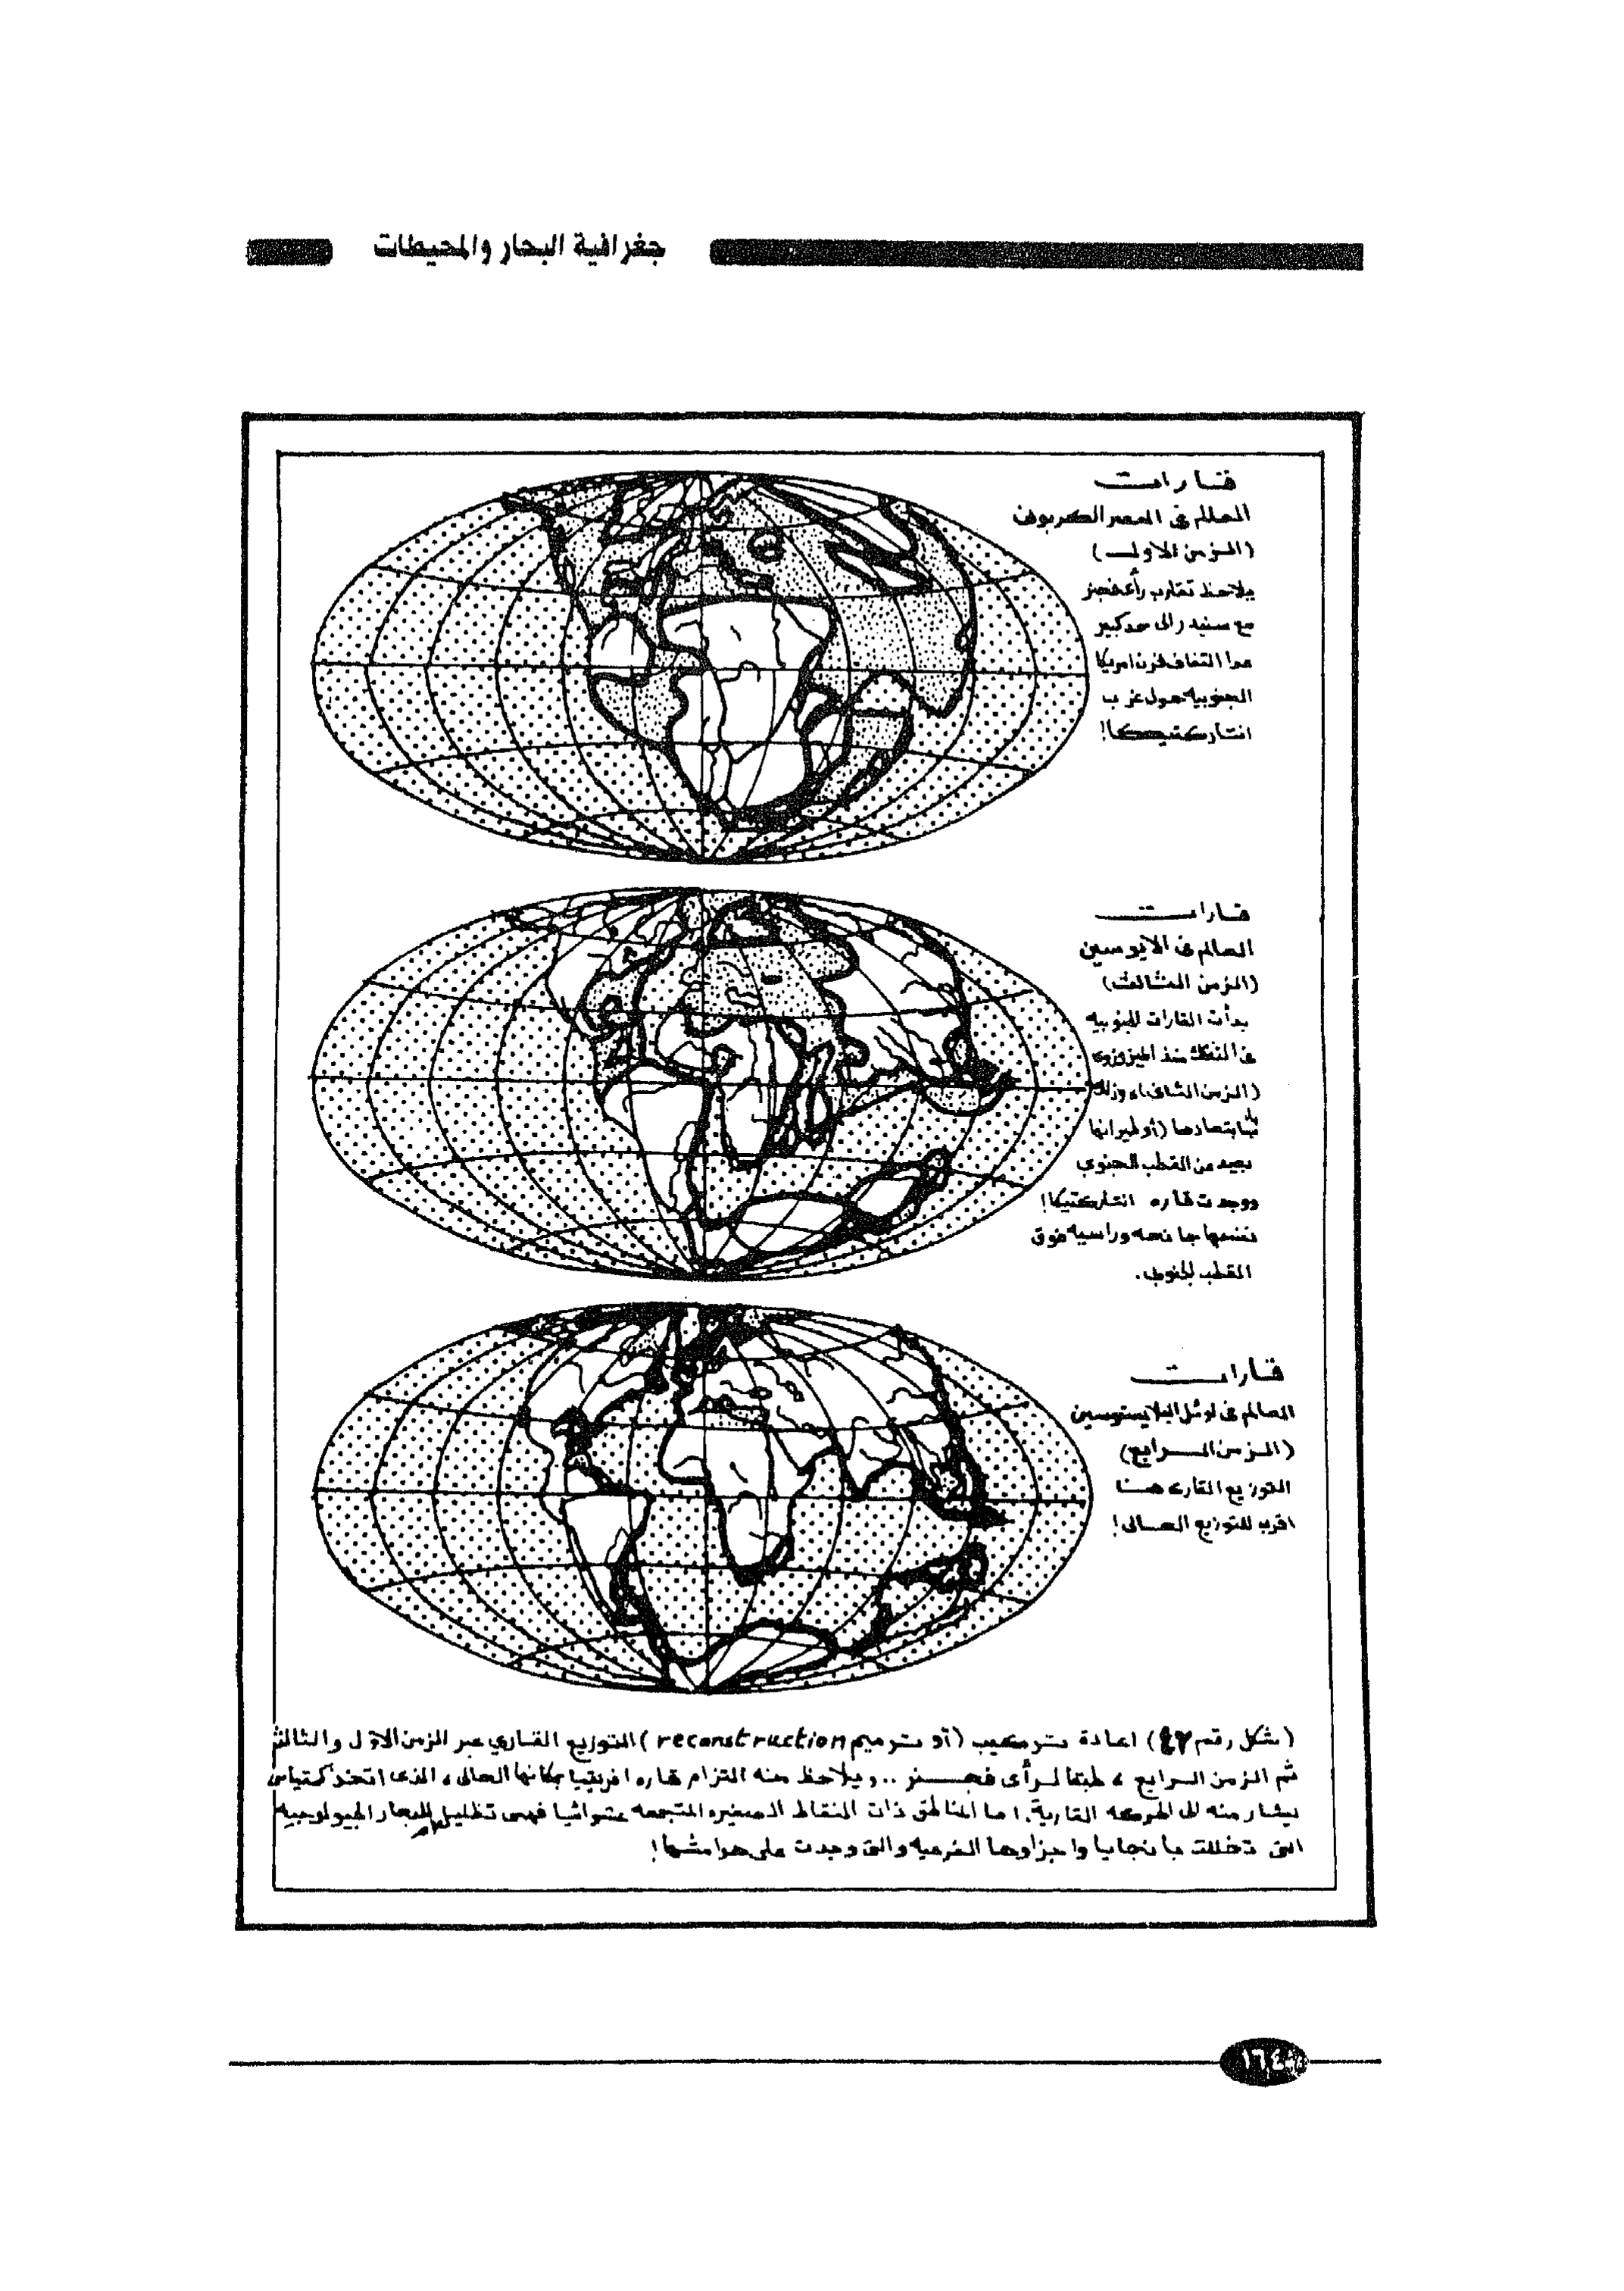 جغرافية البحار والمحيطات
قارات
العالم فى العصر الكربونى
(الزمن الاول)
يلاحظ تقارب رأى فجنر
مع سنيدر الى حد كبير
عدا التفاف قرن امريكا
الجنوبية حول غرب
انتاركتيكا!
قارات
العالم فى الايوسين
(الزمن الثالث)
بدأت القارات الجنوبية
فى التفكك منذ الميزوزوى
(الزمن الثانى)، وذلك
بابتعادها (أو طيرانها
بعيد عن القطب الجنوبى
ووجدت قاره انتاركتيكا!
نفسها جانحه وراسية فوق
القطب الجنوبى.
قارات
العالم فى اوائل البلايستوسين
(الزمن الرابع)
التوزيع القارى هنا
اقرب للتوزيع الحالى!
(شكل رقم ٤٧) اعادة تركيب (أو ترميم reconstruction) التوزيع القاري عبر الزمن الاول والثالث
ثم الزمن الرابع، طبقا لرأى فجنر .. ويلاحظ منه التزام قاره افريقيا بمكانها الحالى، الذى اتخذ كمقياس
يشار منه الى الحركه القارية. اما المناطق ذات النقاط الصغيره المتجمعه عشوائيا فهى تظليل للبحار الجيولوجية
التى تخللت بانجايا واجزاوها الفرعيه والتى وجدت على هوامشها!
١٦٤